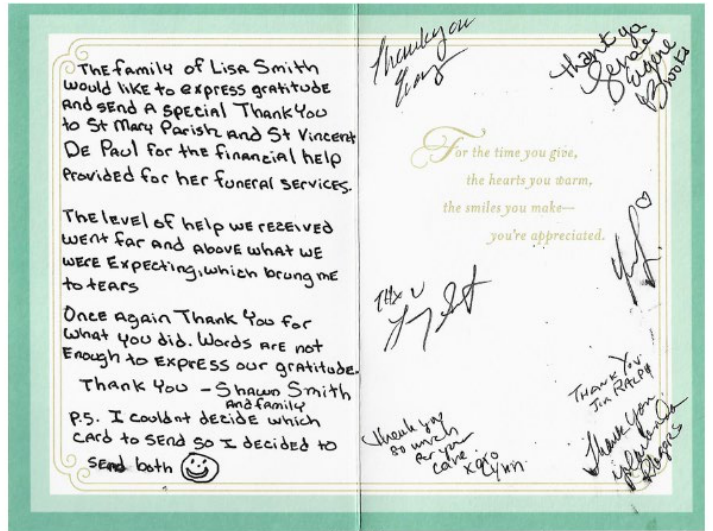 The family of Lisa Smith
would like to express gratitude
and send a special Thank You
to St Mary Parish and St Vincent
De Paul for the financial help
Provided for her funeral services.
The level of help we received
went far and above what we
were Expecting, which brung me
to tears
Once again Thank You for
what you did. Words are not
Enough to express our gratitude.
Thank You - Shawn Smith
and family
P.S. I couldnt decide which
card to send so I decided to
send both
Thank you
Thank ya
Eugene
Brooks
For the time you give,
the hearts you warm,
the smiles you make—
you're appreciated.
Thx U
Thank you
so much
for your
care.
xoxo
Lynn
Thank You
Jim Ralph
Thank you